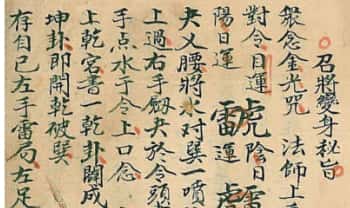 召將變身秘旨
眾念金光咒 法師上
對令日運 虎陰日雷
陽日運 雷運虎
夬又腰將水对巽一噴
上過右手劔夬於令頭
手点水于令上口念
上乾宮書一乾卦開成
坤卦即開乾破巽
存自己左手雷局左足